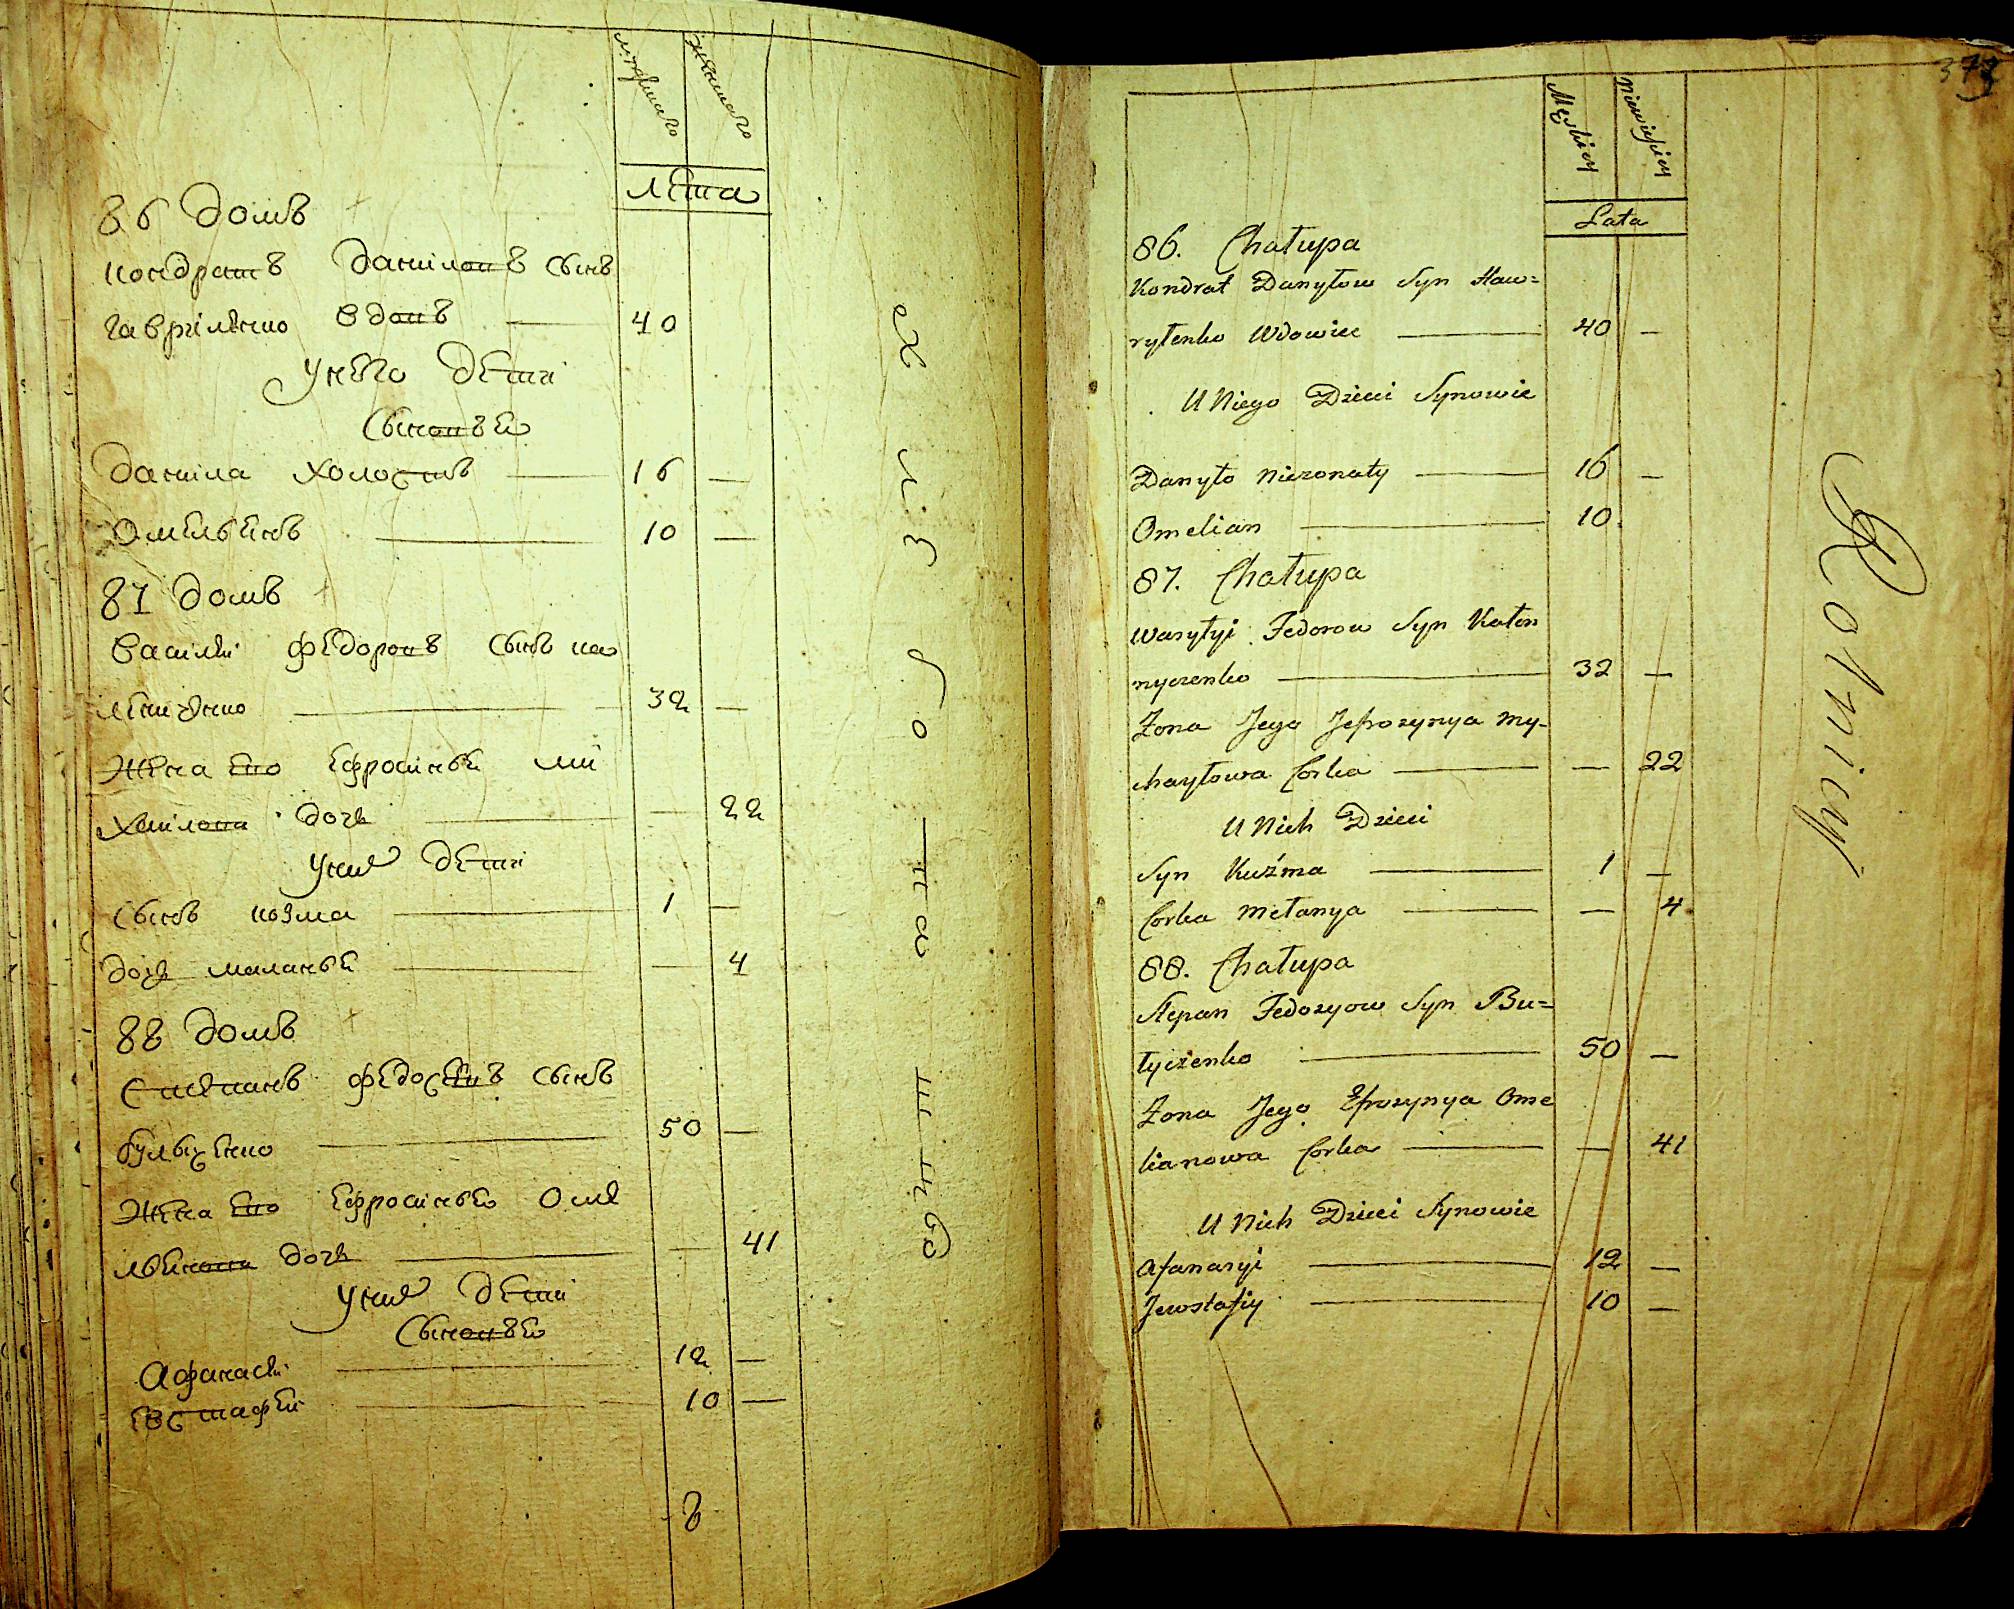 мужеска
женска
лета
86 домъ
кондратъ даниловъ сынъ
гавриленко вдовъ 40
у него дети
сыновья
данила холостъ 16 —
омельянъ 10 —
87 домъ
василей федоровъ сынъ ка
32 —
жена ево ефросинья ми
хаилова дочь — 22
у них дети
сынъ козма 1 —
дочь маланья — 4
88 домъ
степанъ федосеевъ сынъ
булыженко 50 —
жена ево ефросинья оме
льянова дочь — 41
у них дети
сыновья
афанасей 12 —
евстафей 10 —
8
373
Męskiey
Niewieskiey
Lata
86. Chałupa
Kondrat Danyłow Syn Haw=
ryłenko Wdowiec 40 —
U Niego Dzieci Synowie
Danyło Nieżonaty 16 —
Omelian 10
87. Chałupa
Wasylyi Fedorow Syn Kalen
nyczenko 32 —
Żona Jego Jefrozynya My-
chayłowa Corka — 22
U Nich Dzieci
Syn Kuźma 1 —
Corka Mełanya — 4
88. Chałupa
Stepan Fedozyow Syn Bu=
łyżenko 50 —
Żona Jego Efrozynya Ome
lianowa Corka — 41
U Nich Dzieci Synowie
Afanasyi 12 —
Jewstafiy 10 —
Rolnicy